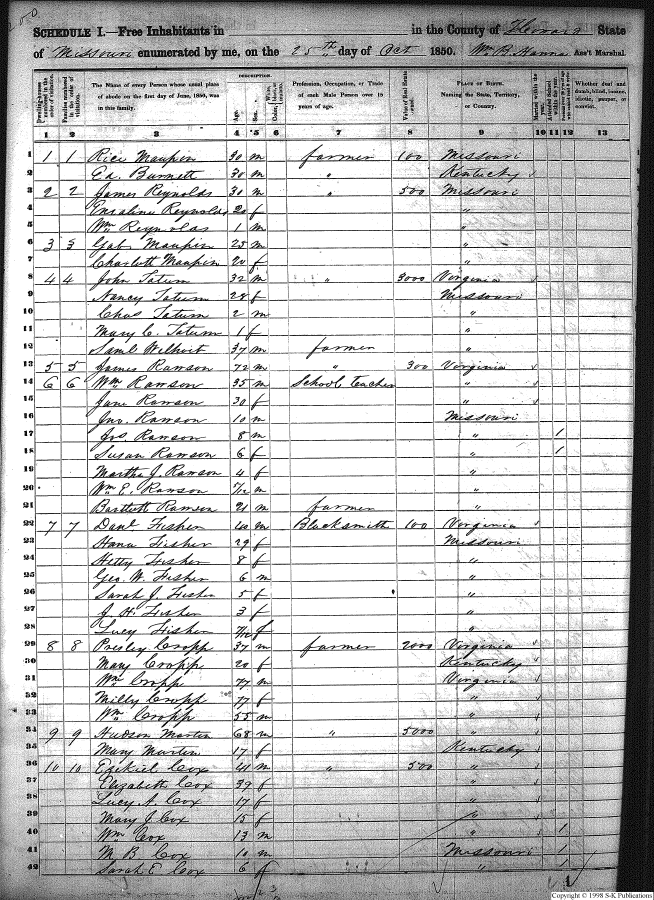 SCHEDULE I.—Free Inhabitants in in the County of Howard State
of Missouri enumerated by me, on the 25th day of Oct 1850. Wm B. Hanna Ass't Marshal.
Dwelling-houses numbered in the order of visitation.
Families numbered in the order of visitation.
The Name of every Person whose usual place of abode on the first day of June, 1850, was in this family.
DESCRIPTION.
Age.
Sex.
Color, White, black, or mulatto.
Profession, Occupation, or Trade of each Male Person over 15 years of age.
Value of Real Estate owned.
PLACE OF BIRTH. Naming the State, Territory, or Country.
Married within the year.
Attended School within the year.
Whether deaf and dumb, blind, insane, idiotic, pauper, or convict.
1 2 3 4 5 6 7 8 9 10 11 12 13
1 1 1 Rice Maupin 30 m farmer 100 Missouri
2 Ed. Burnett 30 m " Kentucky
3 2 2 James Reynolds 30 m " 500 Missouri
4 Reynolds 20 f "
5 Wm Reynolds 1 m "
6 3 3 Gab Maupin 25 m "
7 Charlott Maupin 20 f "
8 4 4 John Tatum 32 m " 3000 Virginia
9 Nancy Tatum 28 f Missouri
10 Chas Tatum 2 m "
11 Mary C. Tatum 1 f "
12 Saml Wilhoit 37 m farmer "
13 5 5 James Rawson 72 m " 300 Virginia
14 6 6 Wm Rawson 35 m School teacher "
15 Jane Rawson 30 f "
16 Jno. Rawson 10 m Missouri
17 Jos. Rawson 8 m " 1
18 Susan Rawson 6 f " 1
19 Martha J. Rawson 4 f "
20 Wm E. Rawson 7/12 m "
21 Bartlett Rawson 21 m farmer "
22 7 7 Danl Fisher 40 m Blacksmith 100 Virginia
23 Hana Fisher 29 f Missouri
24 Hetty Fisher 8 f "
25 Geo. W. Fisher 6 m "
26 Sarah J. Fisher 5 f "
27 J. H. Fisher 3 f "
28 Lucy Fisher 7/12 f "
29 8 8 Presley Cropp 37 m farmer 2000 Virginia
30 Mary Cropp 20 f Kentucky
31 Wm Cropp 77 m Virginia
32 Milly Cropp 77 f "
33 Wm Cropp 55 m "
34 9 9 Hudson Martin 68 m " 5000 "
35 Mary Martin 17 f Kentucky
36 10 10 Ezekiel Cox 41 m " 500 "
37 Elizabeth Cox 39 f "
38 Lucy A. Cox 17 f "
39 Mary J. Cox 15 f "
40 Wm Cox 13 m " 1
41 M B Cox 10 m Missouri 1
42 Sarah E. Cox 6 f " 1
Copyright © 1998 S-K Publications